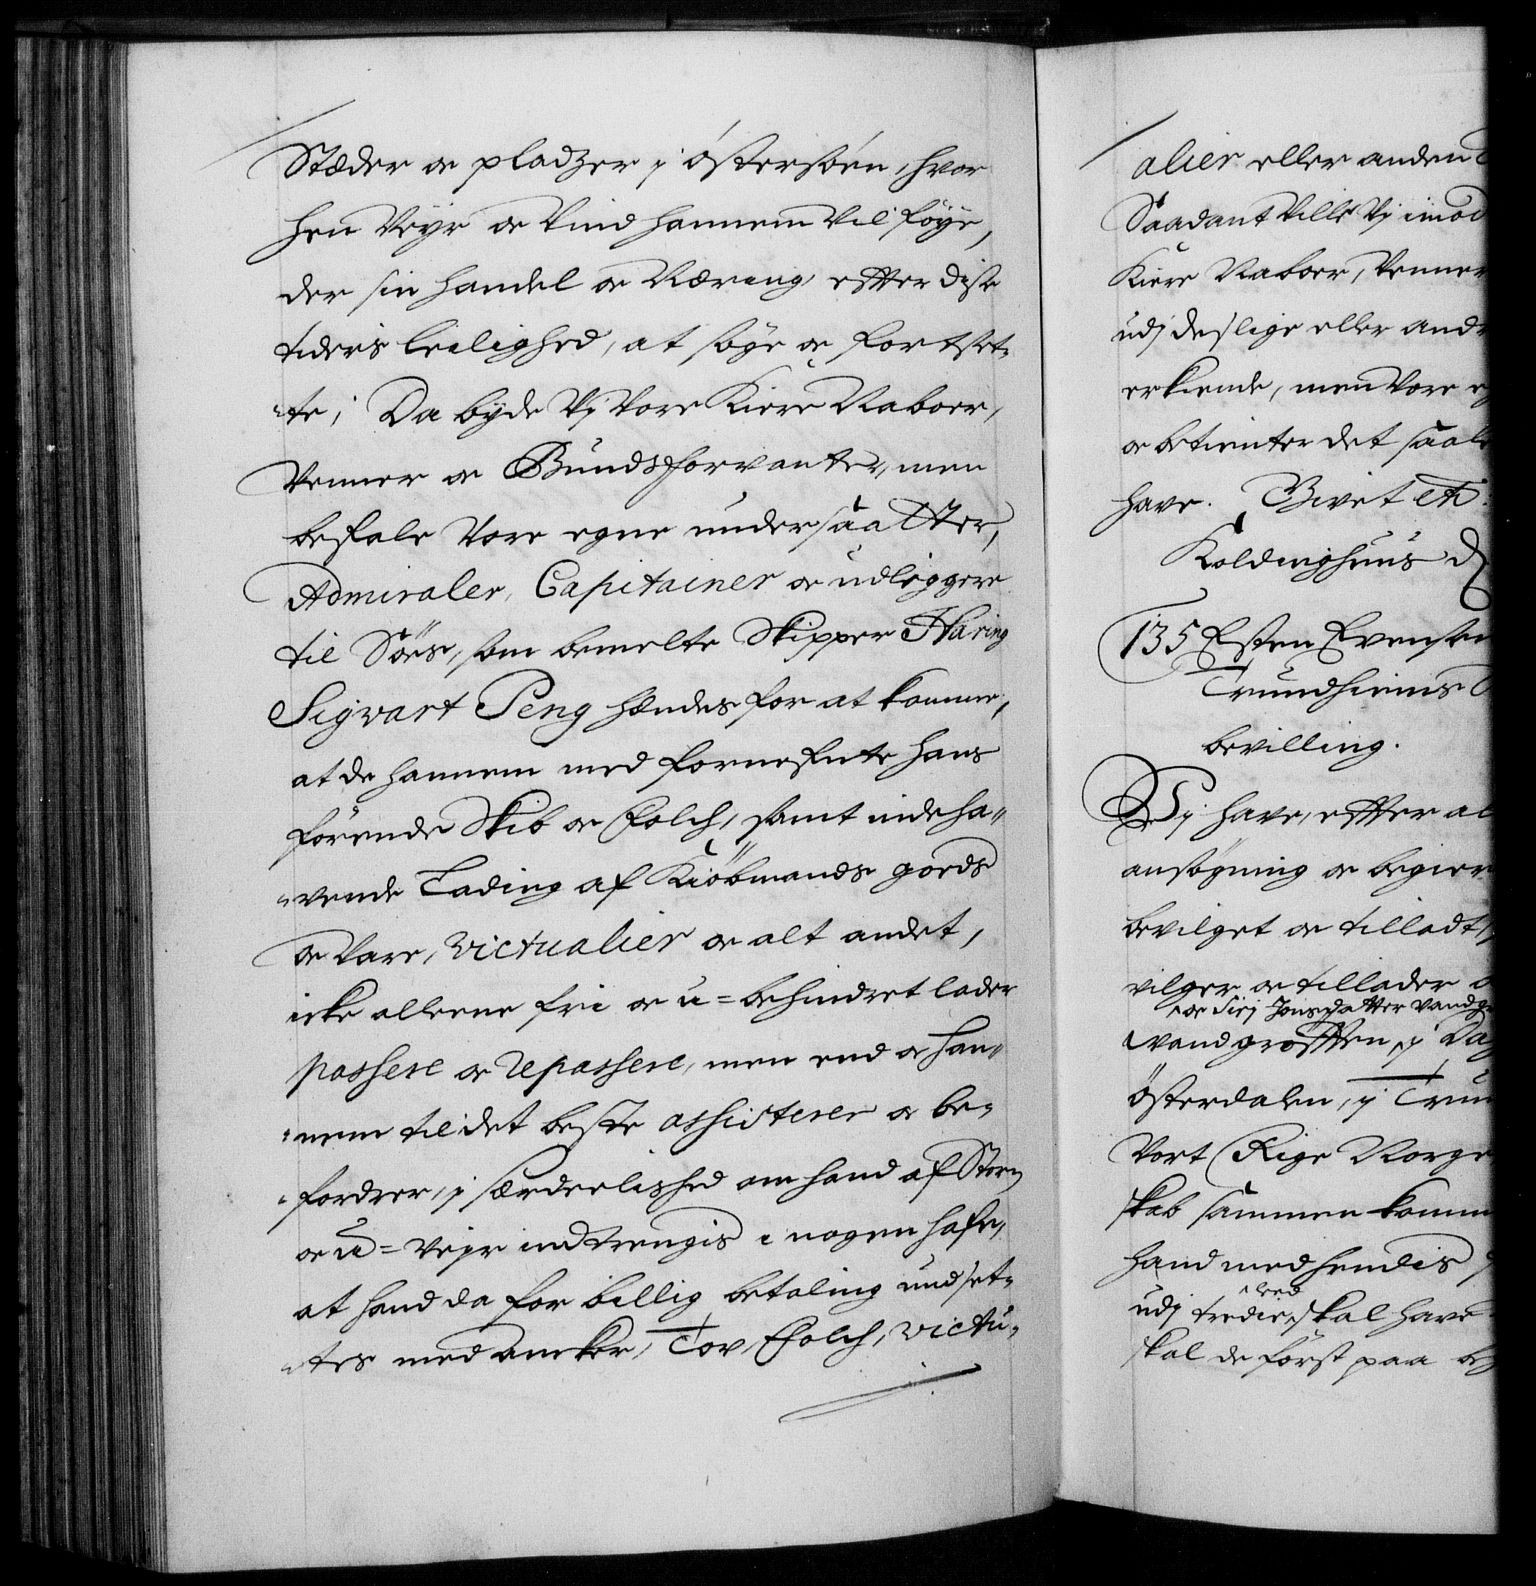 Stæder oc pladzer j östersöen, hvor
hen Veyr oc Vind hannem vil föÿe,
der sin handel oc Næring, effter diße
tiders leilighed, at söge oc fortset-
-te; Da bÿde Vj Vore Kiere Naboer,
Venner oc Bundsforvanter, men
befale Vore egne undersaatter,
Admiraler, Capitainer oc udliggere
til Söes, som bemelte Skipper Haring
Sigvart Peng hændes for at komme,
at de hannem med fornefnte hans
förende Skib oc Folch, samt indeha-
-vende Lading af Kiöbmands goeds
oc Vare, Victualier oc alt andet,
icke alleene frj oc u-behindret lader
passere oc repassere, men end oc han-
-nem til det beste assisterer oc be-
-fordrer, j særdeelished om hand af Storm
oc u-Vejr indtrengis i nogen hafn,
at hand da for billig betaling undset-
-tes med ancker, Tov, Folch, victu-
alier eller anden
Saadant Ville Vj imod
Kiere Naboer, Venner
udj deslige eller andre
erkiende, men Vore eg
oc betienter det saale
have. Givet etc:
Koldinghuus d
135 Esten Evensen
Trundhiems
bevilling.
Vj have, effter al
ansögning oc begier
bevilget oc tilladt,
vilger oc tillader
oc Sirj Jonsdatter Vandg
Vandgröfften, j Dag
Österdalen, j Trun
Vort Rige Norge
skab sammen komme
hand med hendis
udj tredie leed, skal have
skal de först paa beg